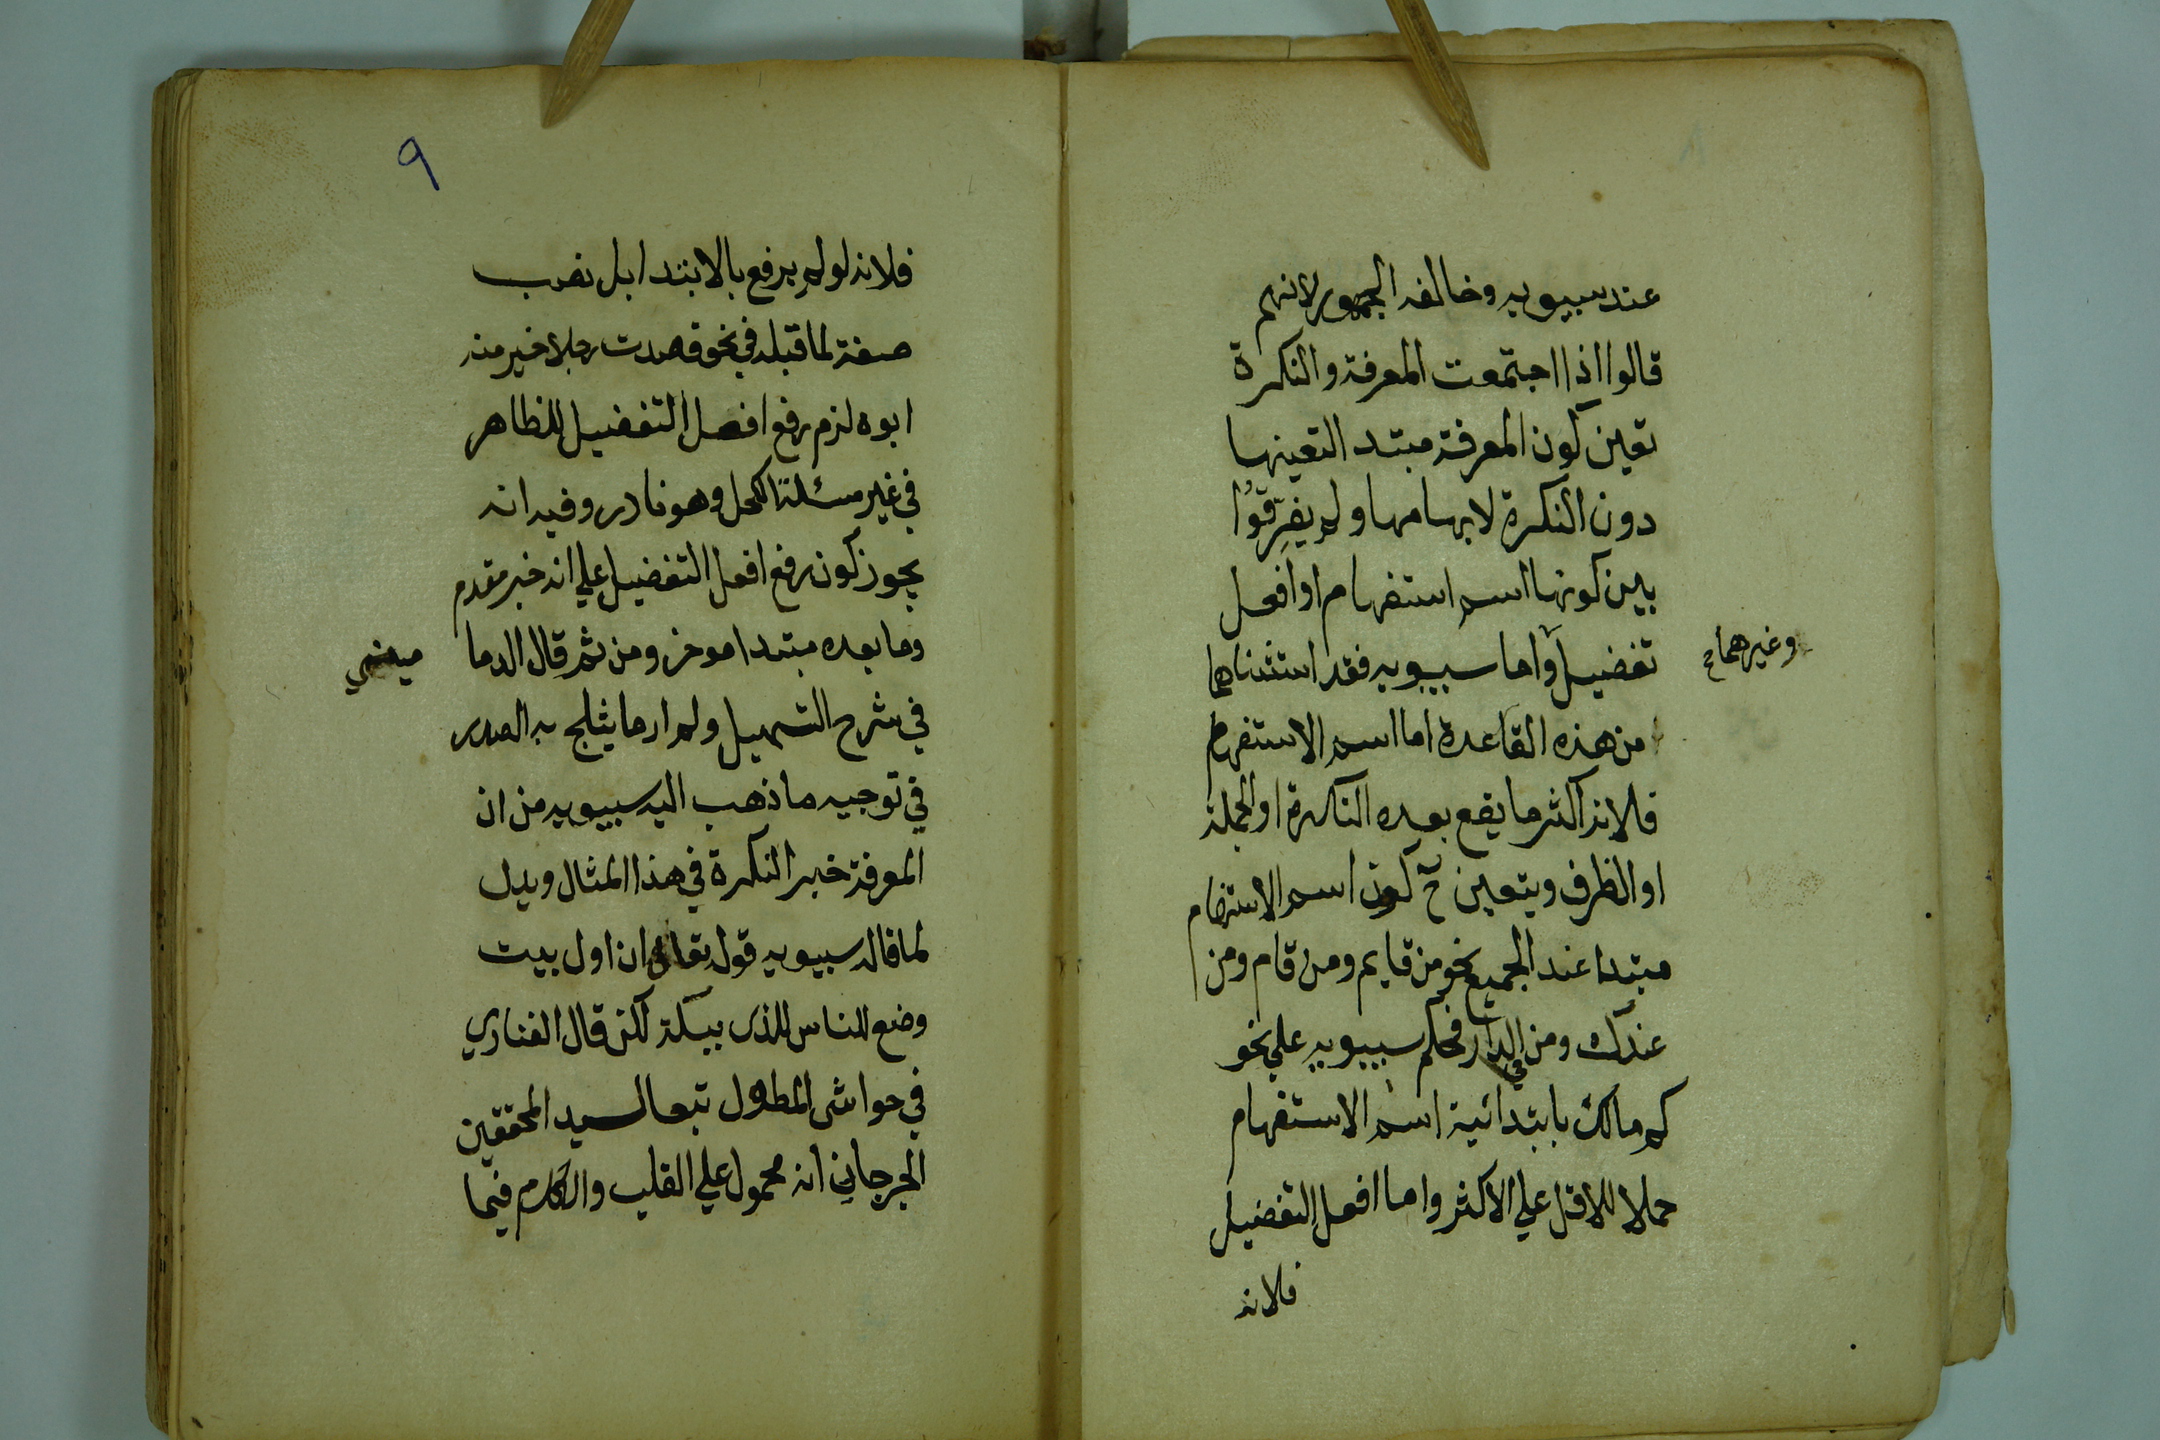 عند سيبويه وخالفه الجمهور لانهم
قالوا اذا اجتمعت المعرفة والنكرة
تعين كون المعرفة مبتدا لتعينها
دون النكرة لابهامها ولم يفرقوا
بين كونها اسم استفهام او افعل
تفضيل واما سيبويه فقد استثناها
وغيرهما
من هذه القاعدة اما اسم الاستفهام
فلانه اكثر ما يقع بعده النكرة او الجملة
او الظرف ويتعين ح كون اسم الاستفهام
مبتدا عند الجميع نحو من قايم ومن قام ومن
عندك ومن في الدار فحكم سيبويه علي نحو
كم مالك بابتدائية اسم الاستفهام
حملا للاقل علي الاكثر واما افعل التفضيل
فلانه
٩
فلانه لو لم يرفع بالابتدا بل نصب
صفة لما قبله في نحو قصدت رجلا خير منه
ابوه لزم رفع افعل التفضيل للظاهر
في غير مسئلة الكحل وهو نادر وفيه انه
يجوز كون رفع افعل التفضيل علي انه خبر مقدم
وما بعده مبتدا موخر ومن ثم قال الدما
ميني
في شرح التسهيل ولم ار ما يثلج به الصدر
في توجيه ما ذهب اليه سيبويه من ان
المعرفة خبر النكرة في هذا المثال ويدل
لما قاله سيبويه قوله تعالي ان اول بيت
وضع للناس للذي ببكة لكن قال الفناري
في حواشي المطول تبعا لسيد المحققين
الجرجاني انه محمول علي القلب والكلام فيما